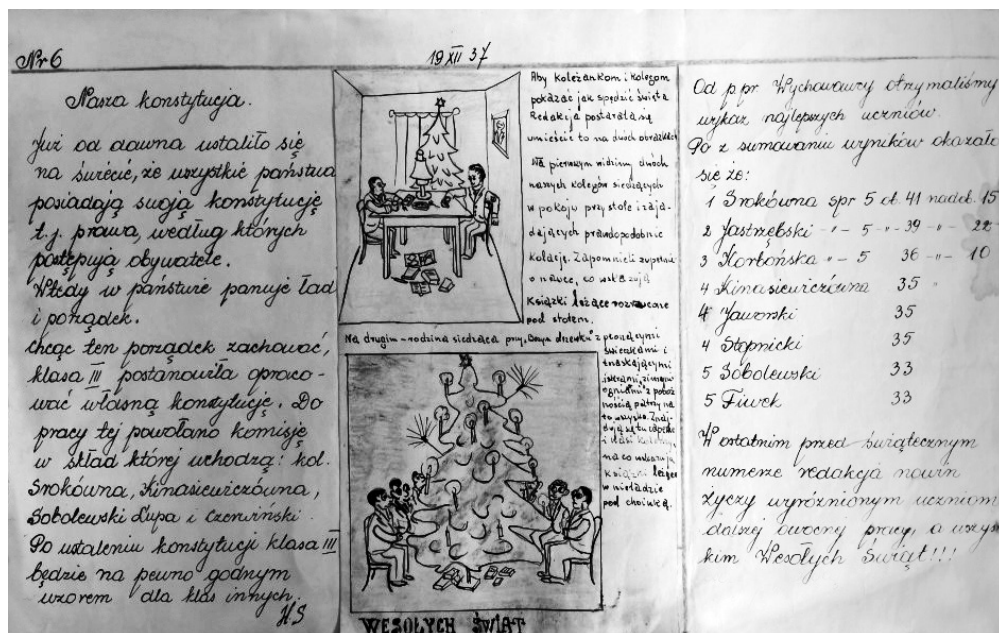 Nr 6
19 XII 37
Nasza konstytucja.
Już od dawna ustaliło się
na świecie, że wszystkie państwa
posiadają swoją konstytucję
t.j. prawa, według których
postępują obywatele.
Wtedy w państwie panuje ład
i porządek.
Chcąc ten porządek zachować,
klasa III postanowiła opraco-
wać własną konstytucję. Do
pracy tej powołano komisję
w skład której wchodzą: kol.
Srokówna, Kinasiewiczówna,
Sobolewski Łupa i Czerwiński.
Po ustaleniu konstytucji klasa III
będzie na pewno godnym
wzorem dla klas innych.
HS
Aby koleżankom i kolegom
pokazać jak spędzić święta
Redakcja postarała się
umieścić to na dwóch obrazkach
Na pierwszym widzimy dwóch
naszych kolegów siedzących
w pokoju przy stole i zaja-
dających prawdopodobnie
kolację. Zapomnieli zupełnie
o nauce, co wskazują
Książki leżące rozrzucone
pod stołem.
Na drugim - rodzina siedząca przy "drzewku" z płonącymi
świeczkami i
trzaskającymi
iskrami zimnych
ogniami z poboż
nością patrzy na
to wszystko.
i nasi koledzy,
na co wskazują
książki leżące
w nieładzie
pod choinką.
WESOŁYCH ŚWIĄT
Od p. pr. Wychowawcy otrzymaliśmy
wykaz najlepszych uczniów.
Po z sumowaniu wyników okazało
się że:
1 Srokówna spr 5 ob. 41 nadob. 15
2 Jastrzębski -"- 5 -"- 39 -"- 22
3 Korbońska -"- 5 36 -"- 10
4 Kinasiewiczówna 35
4 Jaworski 35
4 Stopnicki 35
5 Sobolewski 33
5 Fiwek 33
W ostatnim przed świątecznym
numerze redakcja nowin
życzy wyróżnionym uczniom
dalszej owocnej pracy, a wszyst
kim Wesołych Świąt!!!